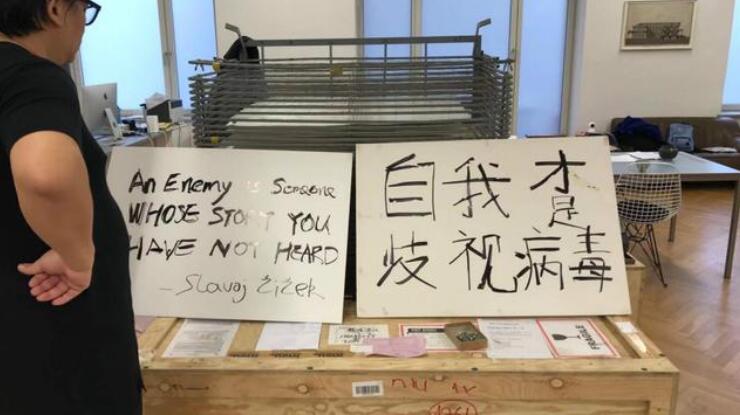 An Enemy is Someone
WHOSE STORY YOU
HAVE NOT HEARD
- Slavoj Žižek
自我才
是
歧视病毒
FRAGILE